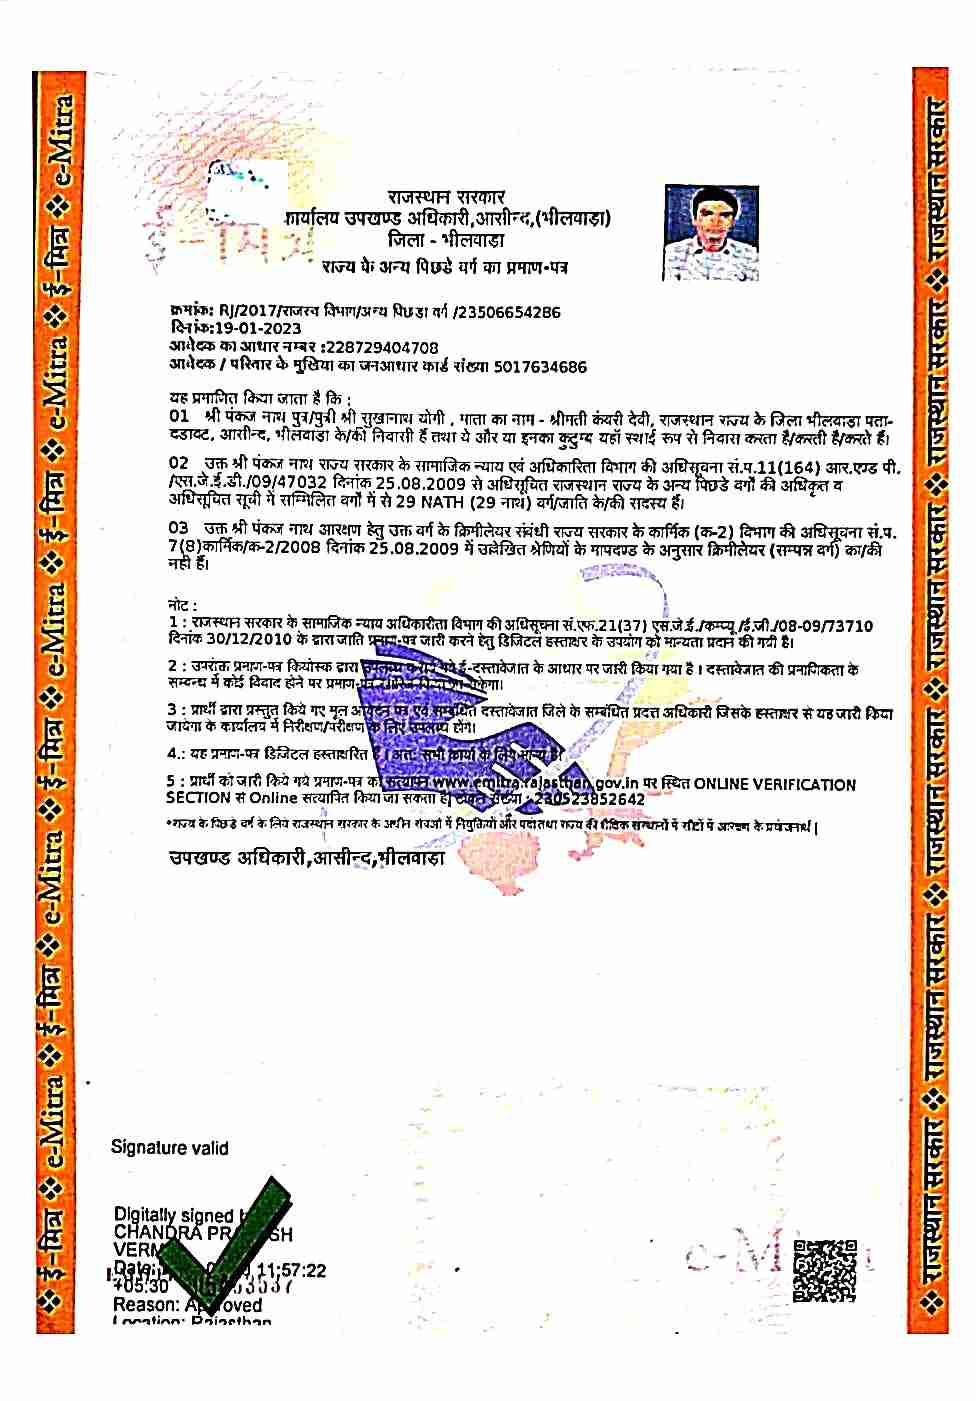 राजस्थान सरकार
कार्यालय उपखण्ड अधिकारी,आसीन्द,(भीलवाड़ा)
जिला - भीलवाडा
राज्य के अन्य पिछडे वर्ग का प्रमाण-पत्र
क्रमांक: RJ/2017/राजस्व विभाग/अन्य पिछडा वर्ग /23506654286
दिनांक:19-01-2023
आवेदक का आधार नम्बर :228729404708
आवेदक / परिवार के मुखिया का जनआधार कार्ड संख्या 5017634686
यह प्रमाणित किया जाता है कि :
01 श्री पंकज नाथ पुत्र/पुत्री श्री सुखानाथ योगी , माता का नाम - श्रीमती कंवरी देवी, राजस्थान राज्य के जिला भीलवाडा पता-
दडावट, आसीन्द, भीलवाडा के/की निवासी हैं तथा ये और या इनका कुटुम्ब यहाँ स्थाई रूप से निवास करता है/करती है/करते हैं।
02 उक्त श्री पंकज नाथ राज्य सरकार के सामाजिक न्याय एवं अधिकारिता विभाग की अधिसूचना सं.प.11(164) आर.एण्ड पी.
/एस.जे.ई.डी./09/47032 दिनांक 25.08.2009 से अधिसूचित राजस्थान राज्य के अन्य पिछडे वर्गों की अधिकृत व
अधिसूचित सूची में सम्मिलित वर्गों में से 29 NATH (29 नाथ) वर्ग/जाति के/की सदस्य हैं।
03 उक्त श्री पंकज नाथ आरक्षण हेतु उक्त वर्ग के क्रिमीलेयर संबंधी राज्य सरकार के कार्मिक (क-2) विभाग की अधिसूचना सं.प.
7(8)कार्मिक/क-2/2008 दिनांक 25.08.2009 में उल्लेखित श्रेणियों के मापदण्ड के अनुसार क्रिमीलेयर (सम्पन्न वर्ग) का/की
नहीं हैं।
नोट :
1 : राजस्थान सरकार के सामाजिक न्याय अधिकारीता विभाग की अधिसूचना सं.एफ.21(37) एस.जे.ई./कम्प्यू./ई.जी./08-09/73710
दिनांक 30/12/2010 के द्वारा जाति प्रमाण-पत्र जारी करने हेतु डिजिटल हस्ताक्षर के उपयोग को मान्यता प्रदान की गयी है।
2 : उपरोक्त प्रमाण-पत्र कियोस्क द्वारा उपलब्ध कराये गये ई-दस्तावेजात के आधार पर जारी किया गया है । दस्तावेजात की प्रमाणिकता के
सम्बन्ध में कोई विवाद होने पर प्रमाण-पत्र
3 : प्रार्थी द्वारा प्रस्तुत किये गए मूल आवेदन पत्र एवं सम्बंधित दस्तावेजात जिले के सम्बंधित प्रदत्त अधिकारी जिसके हस्ताक्षर से यह जारी किया
जायेगा के कार्यालय में निरीक्षण/परीक्षण के लिए उपलब्ध होंगे।
4.: यह प्रमाण-पत्र डिजिटल हस्ताक्षरित है । अतः सभी कार्यो के लिये मान्य है।
5 : प्रार्थी को जारी किये गये प्रमाण-पत्र का सत्यापन www.emitra.rajasthan.gov.in पर स्थित ONLINE VERIFICATION
SECTION से Online सत्यापित किया जा सकता है। टोकन संख्या : 230523852642
*राज्य के पिछडे वर्ग के लिये राजस्थान सरकार के अधीन सेवाओं में नियुक्तियों और पदों तथा राज्य की शैक्षिक संस्थानों में सीटों में आरक्षण के प्रयोजनार्थ |
उपखण्ड अधिकारी,आसीन्द,भीलवाड़ा
Signature valid
Digitally signed by
CHANDRA PRAKASH
VERMA
Date: 11:57:22
+05:30
Reason: Approved
Location: Rajasthan
ई-मित्र ❖ e-Mitra ❖ ई-मित्र ❖ e-Mitra ❖ ई-मित्र ❖ e-Mitra ❖ ई-मित्र ❖ e-Mitra ❖ ई-मित्र ❖ e-Mitra ❖ ई-मित्र ❖ e-Mitra
राजस्थान सरकार ❖ राजस्थान सरकार ❖ राजस्थान सरकार ❖ राजस्थान सरकार ❖ राजस्थान सरकार ❖ राजस्थान सरकार